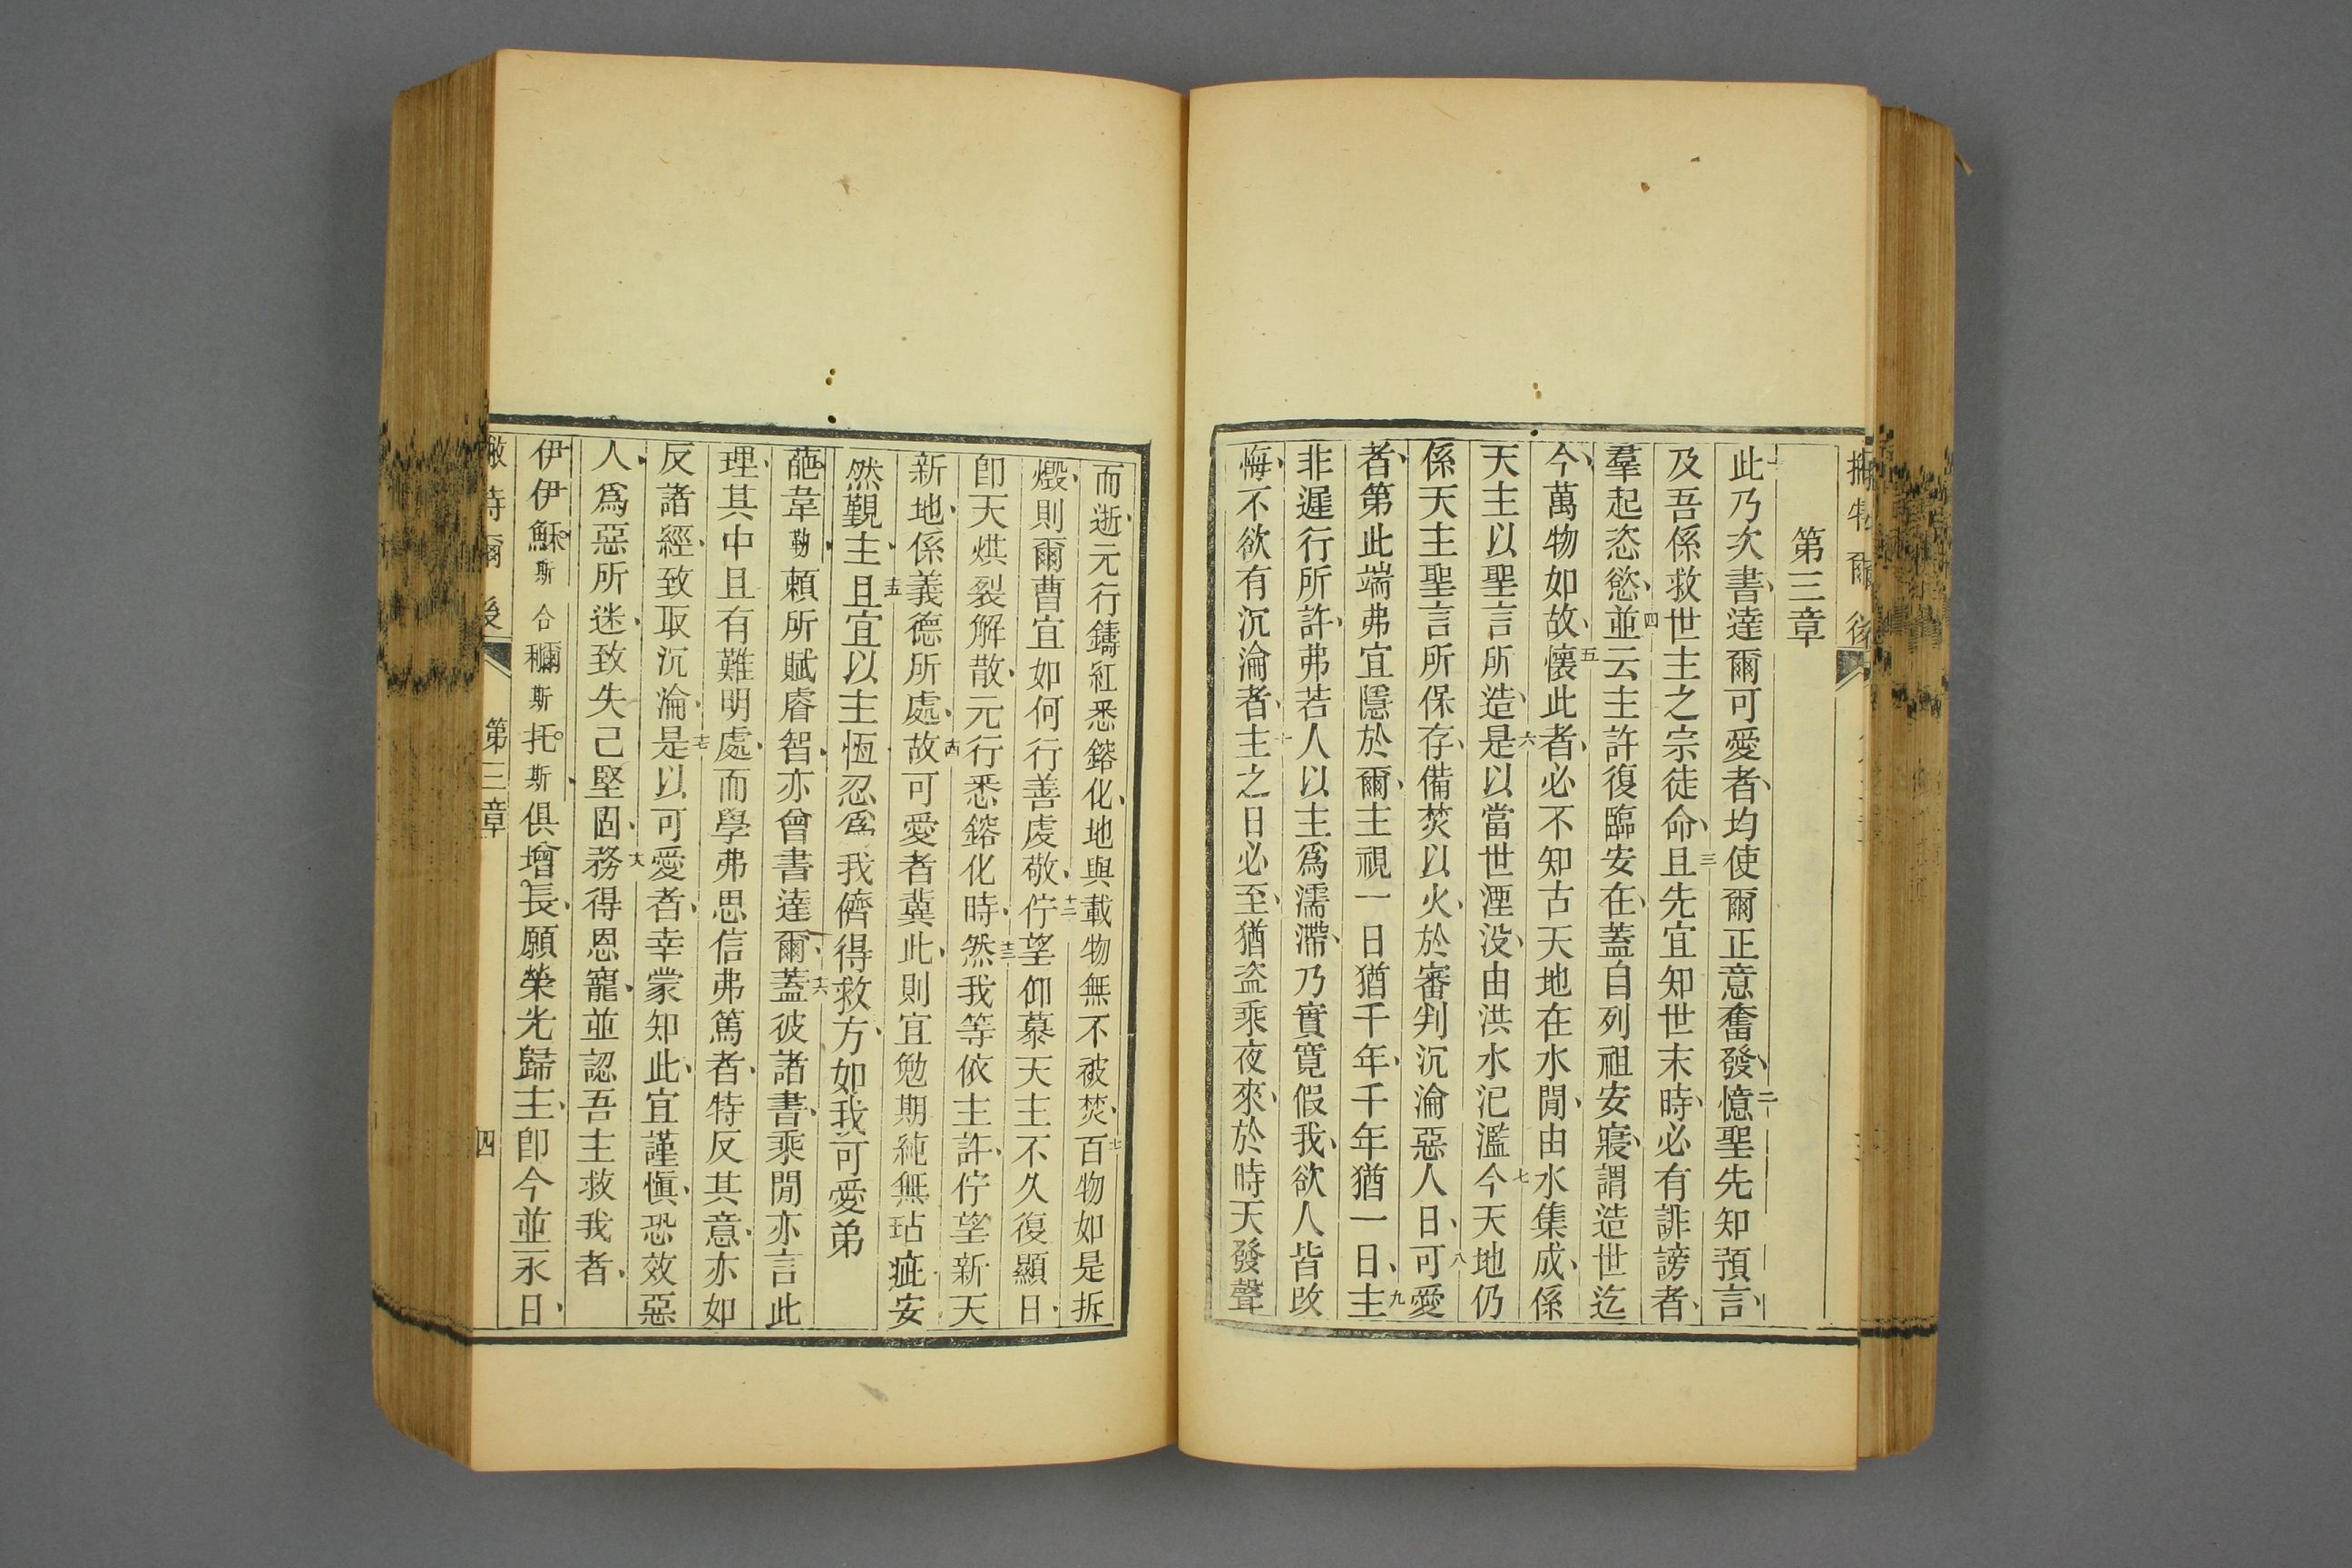 第三章
一此乃次書、達爾可愛者、均使爾正意奮發、二憶聖先知預言、
及吾係救世主之宗徒命、三且先宜知世末時、必有誹謗者、
羣起恣慾、四並云主許復臨安在、蓋自列祖安寢、謂造世迄
今、萬物如故、五懷此者、必不知古天地在水閒、由水集成、係
天主以聖言所造、六是以當世湮没、由洪水汜濫、七今天地仍
係天主聖言所保存、備焚以火、於審判沉淪惡人日、八可愛
者、第此端弗宜隱於爾、主視一日猶千年、千年猶一日、九主
非遲行所許、弗若人以主爲濡滯、乃實寛假我、欲人皆改
悔、不欲有沉淪者、十主之日必至、猶盗乘夜來、於時天發聲
而逝、元行鑄紅悉鎔化、地與載物無不被焚、十一百物如是拆
燬、則爾曹宜如何行善虔敬、十二佇望仰慕天主不久復顯日、
卽天烘裂解散、元行悉鎔化時、十三然我等依主許、佇望新天
新地、係義德所處、十四故可愛者冀此、則宜勉期純無玷疵、安
然覲主、十五且宜以主恆忍爲我儕得救方、如我可愛弟
葩韋勒、賴所賦睿智、亦曾書達爾、十六蓋彼諸書、乘閒亦言此
理、其中且有難明處、而學弗思信弗篤者、特反其意、亦如
反諸經、致取沉淪、十七是以可愛者、幸蒙知此、宜謹愼、恐效惡
人、爲惡所迷、致失己堅固、十八務得恩寵、並認吾主救我者、
伊伊穌斯合穪斯托斯、俱增長、願榮光歸主、卽今並永日、
第三章 四